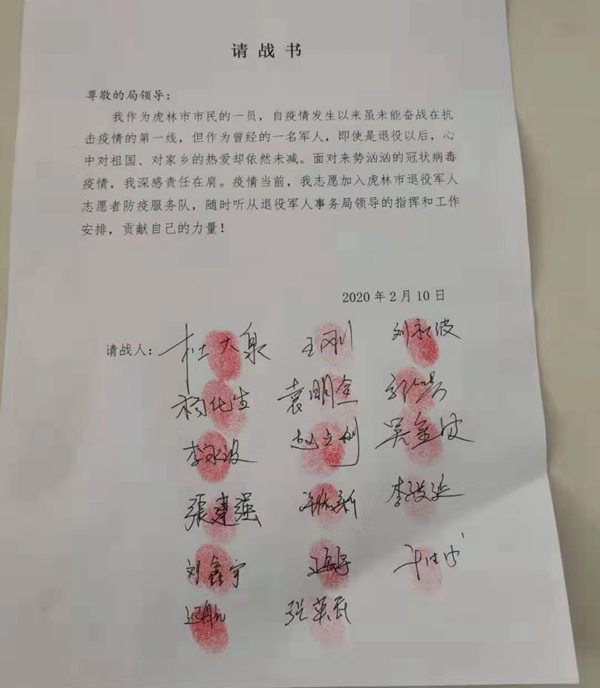 请战书
尊敬的局领导：
我作为虎林市市民的一员，自疫情发生以来虽未能奋战在抗
击疫情的第一线，但作为曾经的一名军人，即使是退役以后，心
中对祖国、对家乡的热爱却依然未减。面对来势汹汹的冠状病毒
疫情，我深感责任在肩。疫情当前，我志愿加入虎林市退役军人
志愿者防疫服务队，随时听从退役军人事务局领导的指挥和工作
安排，贡献自己的力量！
2020年2月10日
请战人： 杜大泉 王刚 刘永波
袁明金
李永波 吴金波
張建强 李凌延
刘鑫宇
迟航 张英民